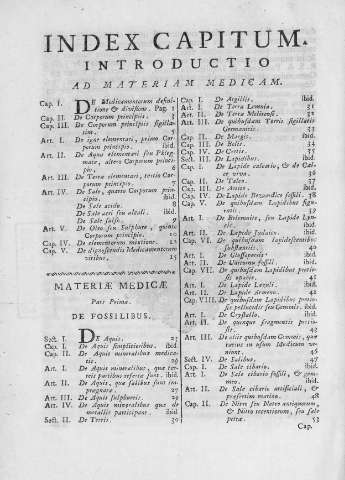 INDEX CAPITUM.
INTRODUCTIO
AD MATERIAM MEDICAM.
Cap. I. DE Medicamentorum defini-
tione & divisione. Pag. 1
Cap. II. De Corporum principiis. 3
Cap. III. De Corporum principiis sigilla-
tim. 5
Art. I. De igne elementari, primo Cor-
porum principio. ibid.
Art. II. De Aqua elementari seu Phleg-
mate, altero Corporum principio.
6
Art. III. De Terra elementari, tertio Cor-
porum principio. 7
Art. IV. De Sale, quarto Corporum prin-
cipio. ibid.
De Sale acido. 8
De Sale acri seu alcali. ibid.
De Sale salso. 9
Art. V. De Oleo seu Sulphure, quinto
Corporum principio. 10
Cap. IV. De elementorum mixtione. 12
Cap. V. De dignoscendis Medicamentorum
viribus. 15
MATERIÆ MEDICÆ
Pars Prima.
DE FOSSILIBUS.
Sect. I. DE Aquis. 25
Cap. I. De Aquis simplicioribus. ibid.
Cap. II. De Aquis mineralibus medica-
tis. 25
Art. I. De Aquis mineralibus, quæ ter-
reis partibus refertæ sunt. ibid.
Art. II. De Aquis, quæ salibus sunt im-
pregnatæ. 27
Art. III. De Aquis sulphureis. 29
Art. IV. De Aquis mineralibus quæ de
metallis participant. ibid.
Sect. II. De Terris. 30
Cap. I. De Argillis. ibid.
Art. I. De Terra Lemnia. 31
Art. II. De Terra Melitensi. 32
Art. III. De quibusdam Terris sigillatis
Germanicis. 33
Cap. II. De Margis. ibid.
Cap. III. De Bolis. 33
Cap. IV. De Cretis. 35
Sect. III. De Lapidibus. ibid.
Cap. I. De Lapide calcario, & de Cal-
ce viva. 36
Cap. II. De Talco. 37
Cap. III. De Amianto. ibid.
Cap. IV. De Lapide Bezoardico fossili. 38
Cap. V. De quibusdam Lapidibus figu-
ratis. 39
Art. I. De Belemnite, seu Lapide Lyn-
cis. ibid.
Art. II. De Lapide Judaico. ibid.
Cap. VI. De quibusdam Lapidescentibus
substantiis. 40
Art. I. De Glossopetris. ibid.
Art. II. De Unicornu fossili. ibid.
Cap. VII. De quibusdam Lapidibus pretio-
sis opacis. 41
Art. I. De Lapide Lazuli. ibid.
Art. II. De Lapide Armeno. 42
Cap. VIII. De quibusdam Lapidibus pretio-
sis pellucidis seu Gemmis. ibid.
Art. I. De Crystallo. ibid.
Art. II. De quinque fragmentis pretio-
sis. 43
Art. III. De aliis quibusdam Gemmis, quæ
tamen in usum Medicum ve-
niunt. 46
Sect. IV. De Salibus. 47
Cap. I. De Sale cibario. ibid.
Art. I. De Sale cibario fossili, & gem-
meo. ibid.
Art. II. De Sale cibario artificiali, &
præsertim marino. 48
Cap. II. De Nitro seu Natro antiquorum,
& Nitro recentiorum, seu sale
petræ. 53
Cap.